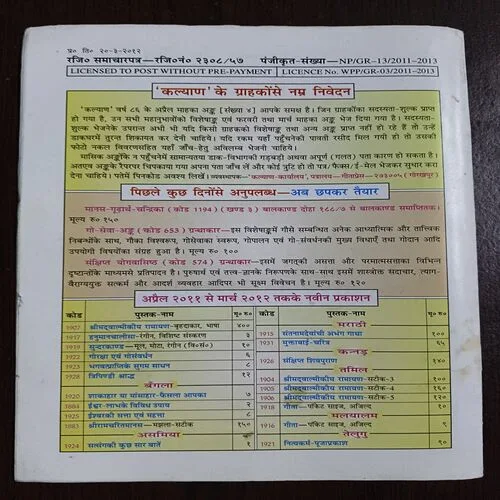 प्र० ति० २०-३-२०१२
रजि० समाचारपत्र—रजि०नं० २३०८/५७ पंजीकृत-संख्या—NP/GR-13/2011-2013
LICENSED TO POST WITHOUT PRE-PAYMENT LICENCE No. WPP/GR-03/2011-2013
'कल्याण' के ग्राहकोंसे नम्र निवेदन
'कल्याण' वर्ष ८६ के अप्रैल माहका अङ्क (संख्या ४) आपके समक्ष है। जिन ग्राहकोंका सदस्यता-शुल्क प्राप्त
हो गया है, उन सभी महानुभावोंको विशेषाङ्क एवं फरवरी तथा मार्च माहका अङ्क भेज दिया गया है। सदस्यता-
शुल्क भेजनेके उपरान्त अभी भी यदि किसी ग्राहकको विशेषाङ्क तथा अन्य अङ्क प्राप्त नहीं हो रहे हैं तो उन्हें
डाकघरमें तुरन्त शिकायत कर देनी चाहिये। यदि रकम यहाँ पहुँचनेकी पावती रसीद मिल गयी हो तो उसकी
फोटो नकल विवरणसहित यहाँ जाँच-हेतु अविलम्ब भेजनी चाहिये।
मासिक अङ्कोंके न पहुँचनेमें सामान्यतया डाक-विभागकी गड़बड़ी अथवा अपूर्ण (गलत) पता कारण हो सकता है।
अतएव अङ्कके रैपरपर चिपकाया गया अपना पता जाँच लें और कोई त्रुटि हो तो पत्र/फैक्स/ई-मेल भेजकर सुधार करा
देना चाहिये। पतेमें पिनकोड अवश्य लिखें। व्यवस्थापक—'कल्याण-कार्यालय', पत्रालय—गीताप्रेस—२७३००५ (गोरखपुर)
पिछले कुछ दिनोंसे अनुपलब्ध—अब छपकर तैयार
मानस-गूढार्थ-चन्द्रिका (कोड 1194) (खण्ड ३) बालकाण्ड दोहा १८८/७ से बालकाण्ड समाप्तितक।
मूल्य रु० १५०
गो-सेवा-अङ्क (कोड 653) ग्रन्थाकार—इस विशेषाङ्कमें गौसे सम्बन्धित अनेक आध्यात्मिक और तात्त्विक
निबन्धोंके साथ, गौका विश्वरूप, गोसेवाका स्वरूप, गोपालन एवं गो-संवर्धनकी मुख्य विधाएँ तथा गोदान आदि
उपयोगी विषयोंका संग्रह हुआ है। मूल्य रु० १००
संक्षिप्त योगवासिष्ठ (कोड 574) ग्रन्थाकार—इसमें जगत्की असत्ता और परमात्मसत्ताका विभिन्न
दृष्टान्तोंके माध्यमसे प्रतिपादन है। पुरुषार्थ एवं तत्त्व-ज्ञानके निरूपणके साथ-साथ इसमें शास्त्रोक्त सदाचार, त्याग-
वैराग्ययुक्त सत्कर्म और आदर्श व्यवहार आदिपर भी सूक्ष्म विवेचन है। मूल्य रु० १२०
अप्रैल २०११ से मार्च २०१२ तकके नवीन प्रकाशन
कोड पुस्तक-नाम मू० रु० कोड पुस्तक-नाम मू० रु०
1907 श्रीमद्वाल्मीकीय रामायण-बृहदाकार, भाषा ४००
1917 हनुमानचालीसा-रंगीन, विशिष्ट संस्करण ३
1919 सुन्दरकाण्ड—मूल, मोटा, रंगीन (वि०सं०) १०
1922 गोरक्षा एवं गोसंवर्धन ६
1923 भगवत्प्राप्तिके सुगम साधन ८
1928 त्रिपिण्डी श्राद्ध १२
बँगला
1920 शाकाहार या मांसाहार-फैसला आपका ७
1884 ईश्वर-लाभके विविध उपाय २
1925 ईश्वरकी सत्ता एवं महत्ता ८
1883 श्रीरामचरितमानस—मझला-सटीक १५०
असमिया
1924 सत्संगकी कुछ सार बातें १
मराठी
1915 संतनामदेवांची अभंग गाथा १००
1931 मुक्ताबाई-चरित्र १५
कन्नड़
1926 संक्षिप्त शिवपुराण १४०
तमिल
1904 श्रीमद्वाल्मीकीय रामायण-सटीक-3 १००
1905 श्रीमद्वाल्मीकीय रामायण-सटीक-5 १६०
1906 श्रीमद्वाल्मीकीय रामायण-सटीक-4 १२०
1918 गीता—पॉकेट साइज, अजिल्द १०
मलयालम
1916 गीता—पॉकेट साइज, अजिल्द १०
तेलुगु
1921 नित्यकर्म-पूजाप्रकाश ९०